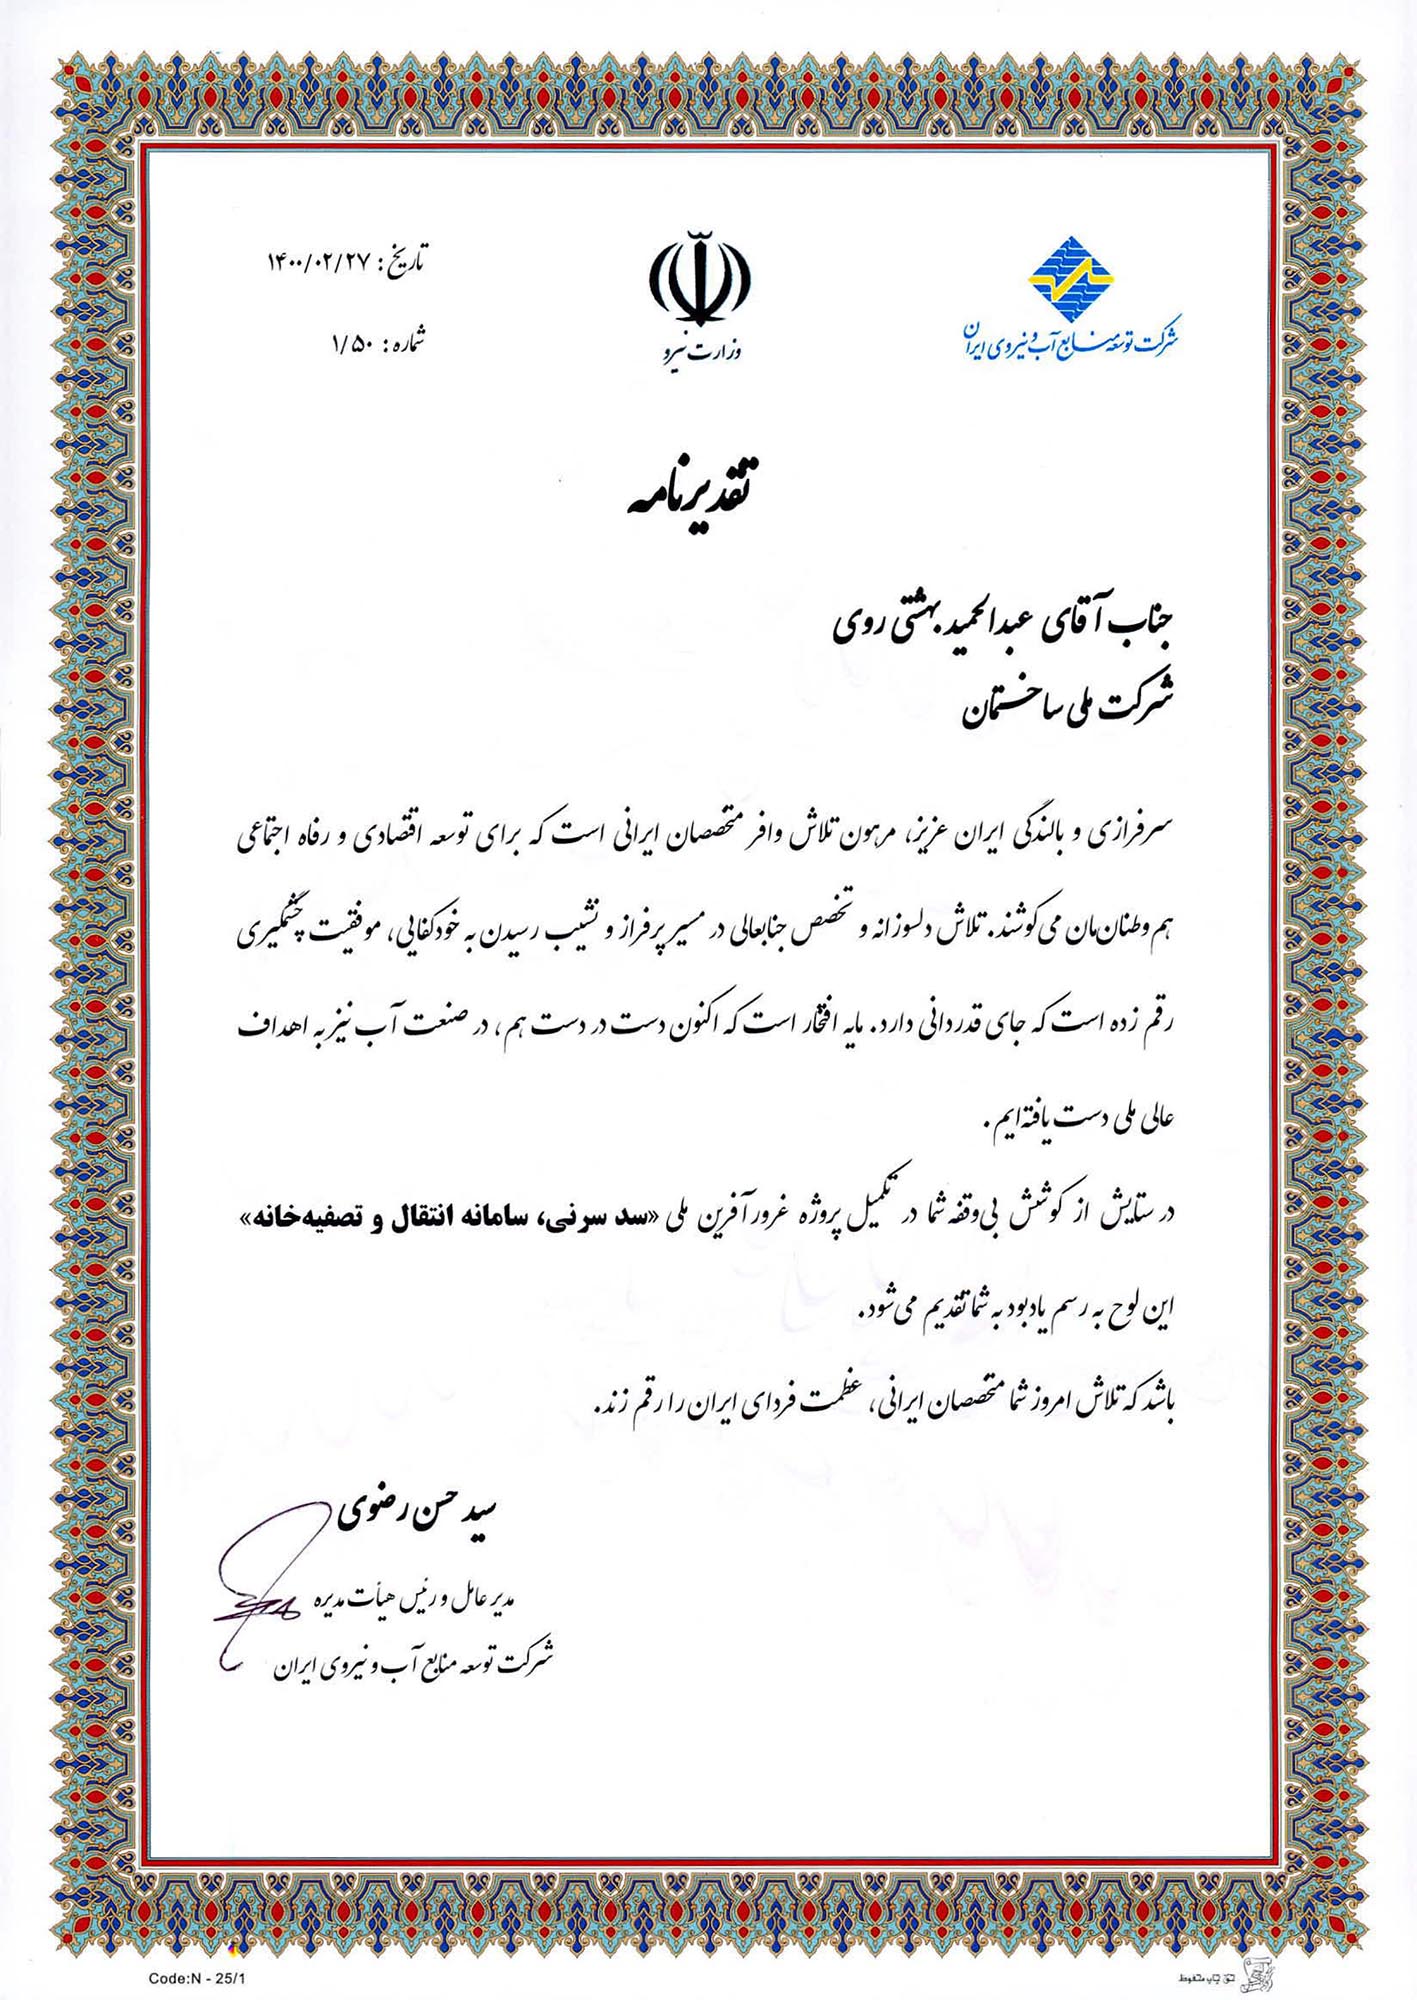 شرکت توسعه منابع آب و نیروی ایران
وزارت نیرو
تاریخ: ۱۴۰۰/۰۲/۲۷
شماره: ۱/۵۰
تقدیرنامه
جناب آقای عبدالحمید بهشتی روی
شرکت ملی ساختمان
سرفرازی و بالندگی ایران عزیز، مرهون تلاش وافر متخصصان ایرانی است که برای توسعه اقتصادی و رفاه اجتماعی
هم وطنان‌مان می‌کوشند. تلاش دلسوزانه و تخصص جنابعالی در مسیر پرفراز و نشیب رسیدن به خودکفایی، موفقیت چشمگیری
رقم زده است که جای قدردانی دارد. مایه افتخار است که اکنون دست در دست هم، در صنعت آب نیز به اهداف
عالی ملی دست یافته‌ایم.
در ستایش از کوشش بی‌وقفه شما در تکمیل پروژه غرورآفرین ملی «سد سرنی، سامانه انتقال و تصفیه‌خانه»
این لوح به رسم یادبود به شما تقدیم می‌شود.
باشد که تلاش امروز شما متخصصان ایرانی، عظمت فردای ایران را رقم زند.
سید حسن رضوی
مدیر عامل و رئیس هیأت مدیره
شرکت توسعه منابع آب و نیروی ایران
Code:N - 25/1
حق چاپ محفوظ